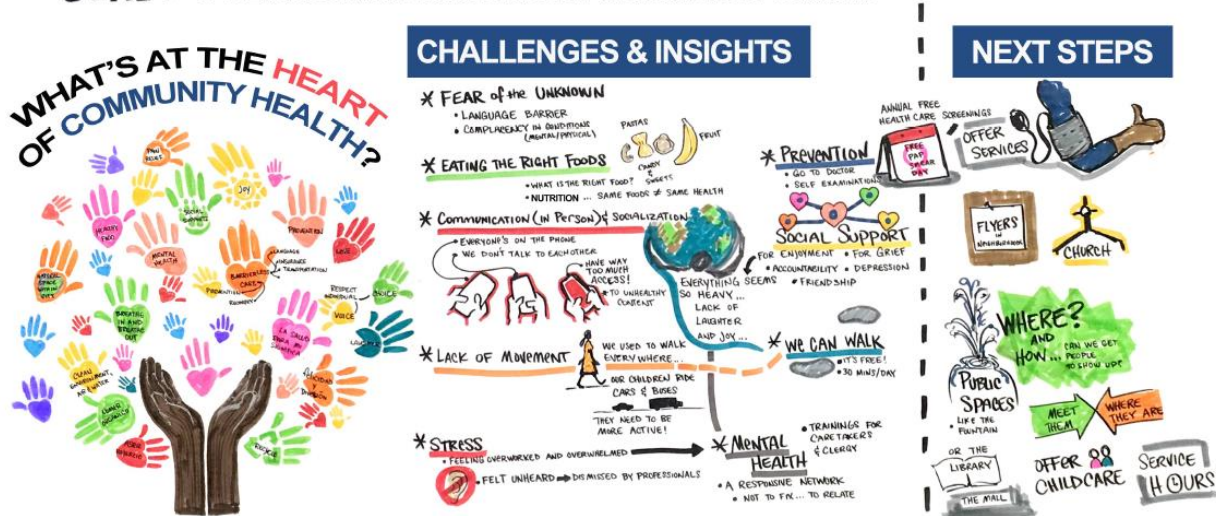 WHAT'S AT THE HEART
OF COMMUNITY HEALTH?
PAIN RELIEF
JOY
SOCIAL SUPPORTS
HEALTHY FOOD
PREVENTION
LOVE
MENTAL HEALTH
NATURAL SPACE WITHIN CITY
BARRIERLESS CARE
LANGUAGE
INSURANCE
TRANSPORTATION
PREVENTION
RECOVERY
RESPECT INDIVIDUAL
CHOICE
VOICE
BREATHING IN AND BREATHE OUT
LA SALUD PARA MI SIGNIFICA
LAUGHTER
CLEAN ENVIRONMENT, AIR & WATER
COMER ORGANICO
CHALLENGES & INSIGHTS
* FEAR of the UNKNOWN
• LANGUAGE BARRIER
• COMPLACENCY IN CONDITIONS
(MENTAL/PHYSICAL)
PASTAS
FRUIT
CANDY & SWEETS
* EATING THE RIGHT FOODS
• WHAT IS THE RIGHT FOOD?
• NUTRITION ... SAME FOODS ≠ SAME HEALTH
* COMMUNICATION (IN PERSON) & SOCIALIZATION
EVERYONE'S ON THE PHONE
WE DON'T TALK TO EACH OTHER
HAVE WAY
TOO MUCH
ACCESS!
* TO UNHEALTHY
CONTENT
EVERYTHING SEEMS
SO HEAVY...
LACK OF
LAUGHTER
AND JOY...
* LACK OF MOVEMENT
WE USED TO WALK
EVERYWHERE...
OUR CHILDREN RIDE
CARS & BUSES
THEY NEED TO BE
MORE ACTIVE!
* STRESS
• FEELING OVERWORKED AND OVERWHELMED
• FELT UNHEARD ➡ DISMISSED BY PROFESSIONALS
* PREVENTION
• GO TO DOCTOR
• SELF EXAMINATION
SOCIAL SUPPORT
• FOR ENJOYMENT • FOR GRIEF
• ACCOUNTABILITY • DEPRESSION
• FRIENDSHIP
* WE CAN WALK
• IT'S FREE!
• 30 MINS/DAY
* MENTAL
HEALTH
• TRAININGS FOR
CARETAKERS
& CLERGY
• A RESPONSIVE NETWORK
• NOT TO FIX... TO RELATE
NEXT STEPS
ANNUAL FREE
HEALTH CARE SCREENINGS
FREE
PAP
SMEAR
DAY
OFFER
SERVICES
FLYERS
IN
NEIGHBORHOOD
CHURCH
WHERE?
AND
HOW... CAN WE GET
PEOPLE
TO SHOW UP?
PUBLIC
SPACES
• LIKE THE
FOUNTAIN
MEET
THEM
WHERE
THEY ARE
OR THE
LIBRARY
THE MALL
OFFER
CHILDCARE
SERVICE
HOURS